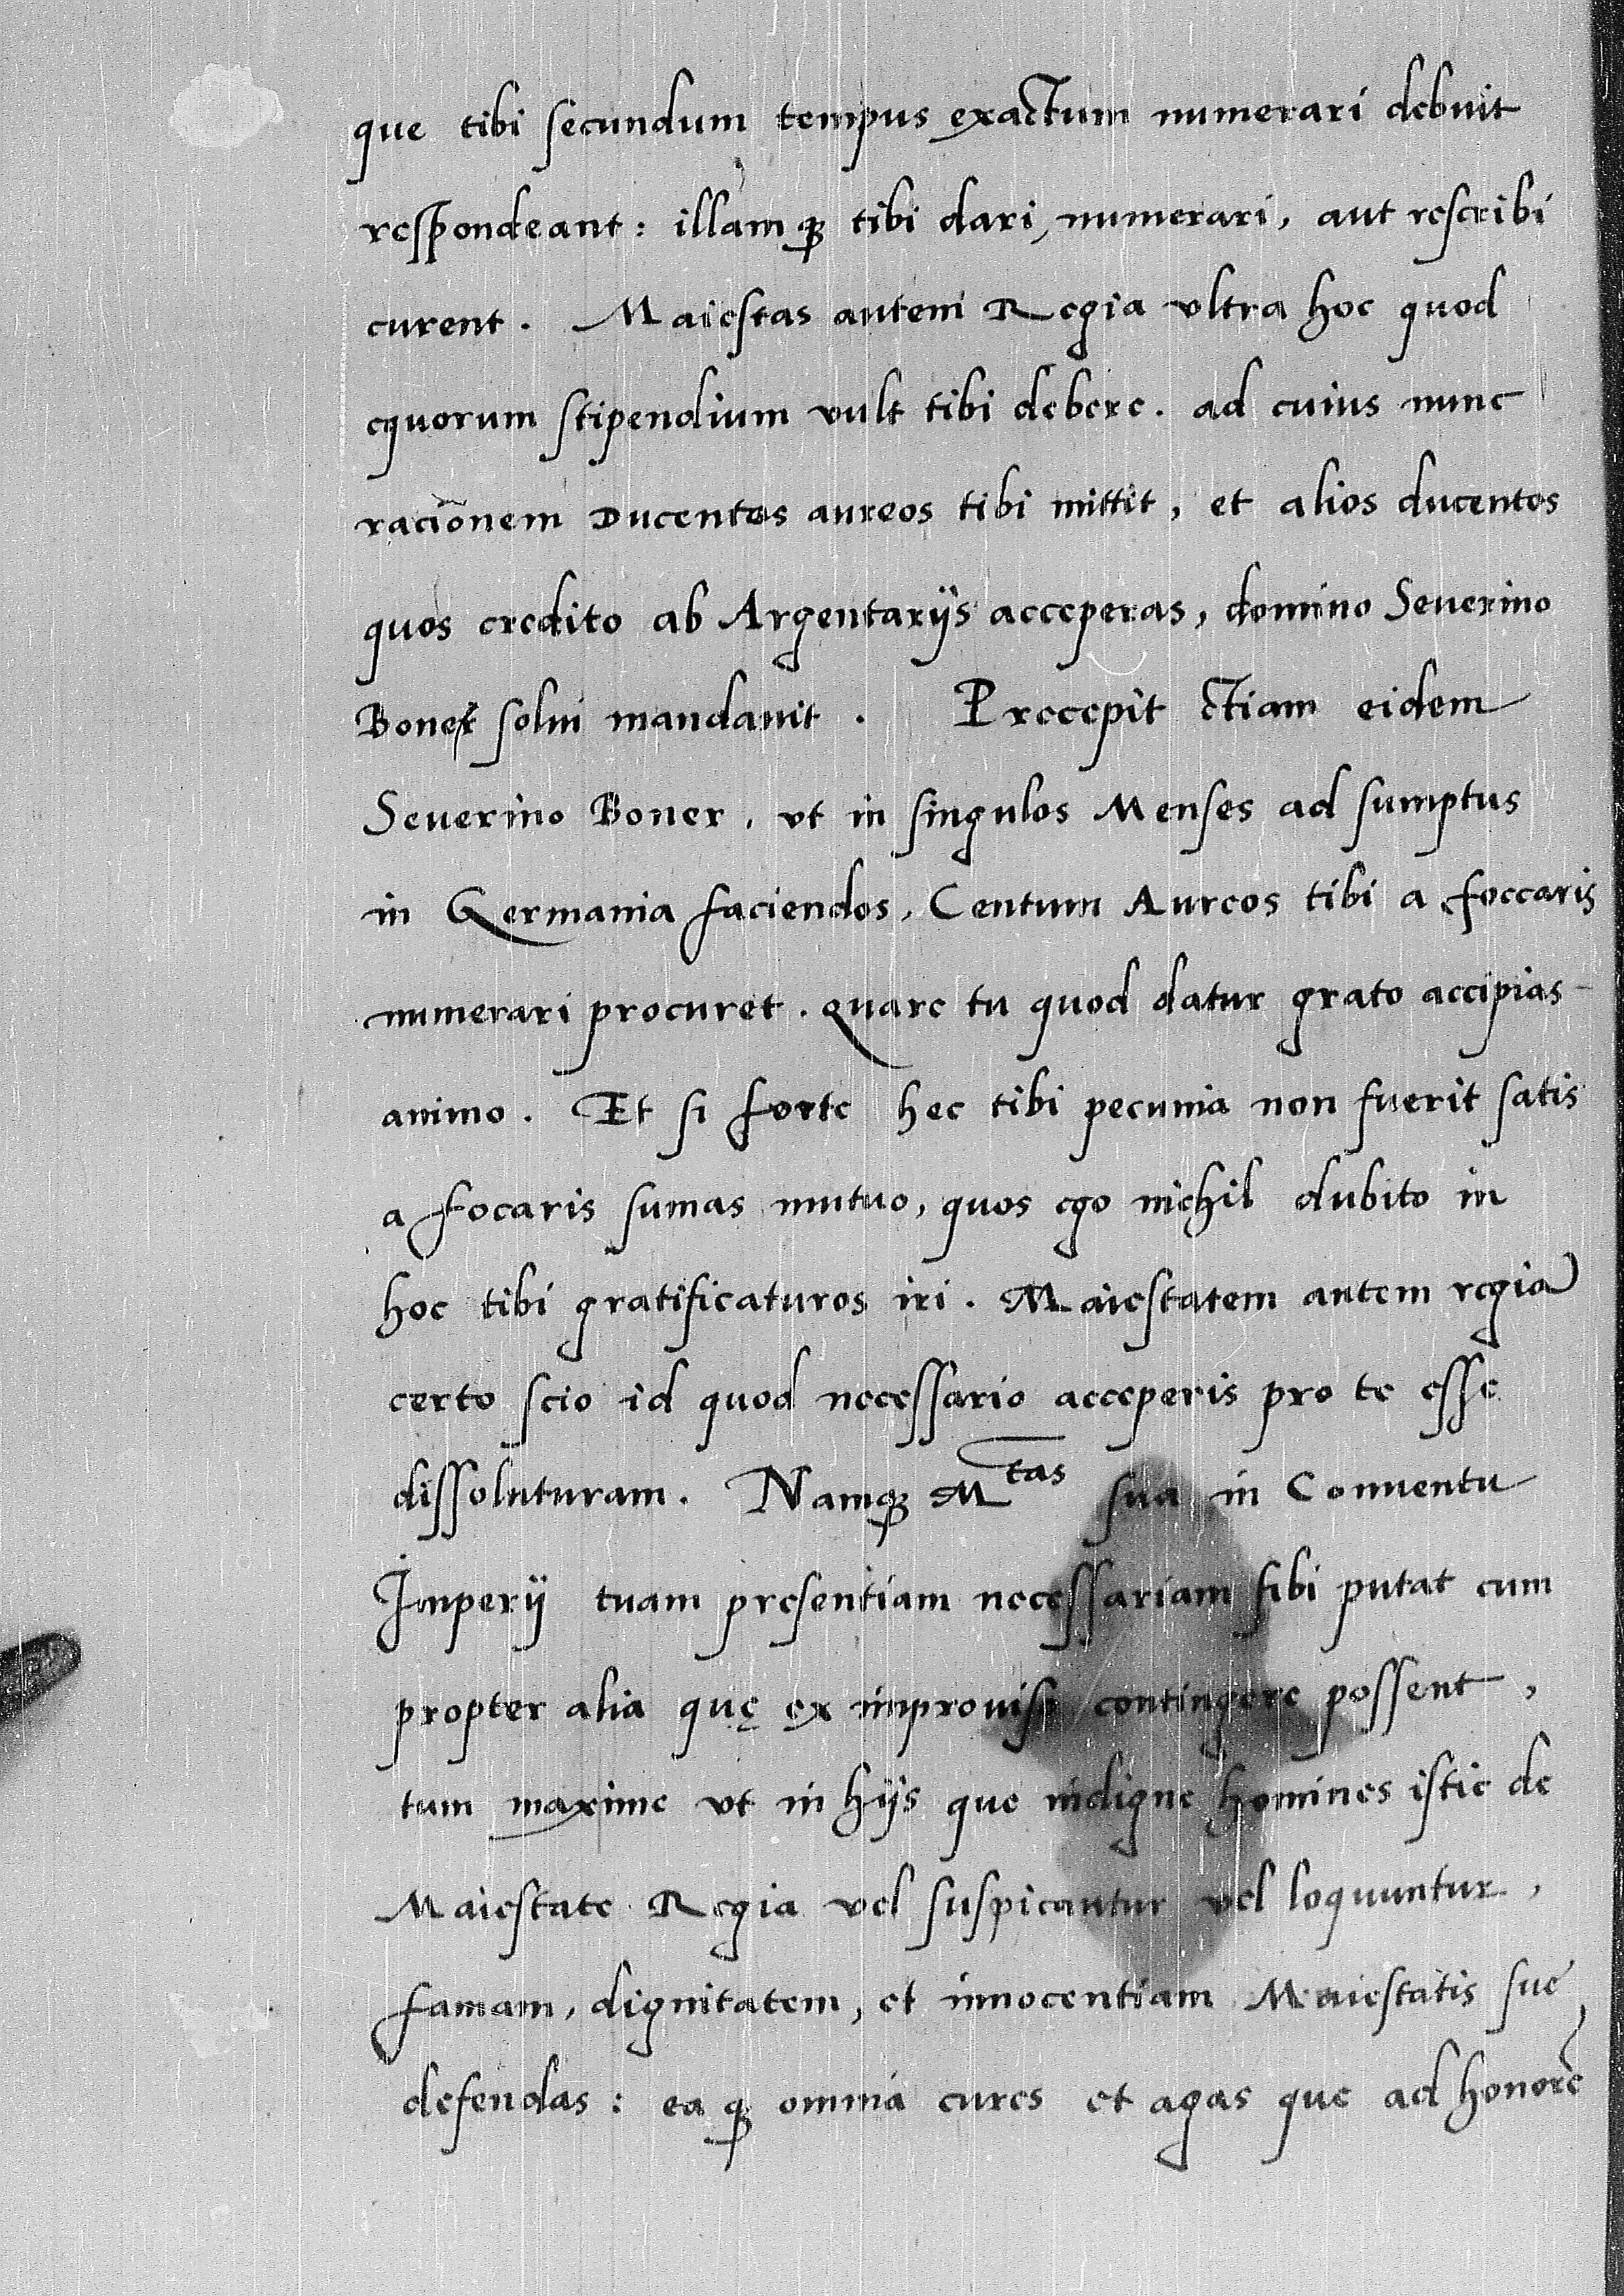 que tibi secundum tempus exactum numerari debuit
respondeant: illamqꝫ tibi dari, numerari, aut rescribi
curent. Maiestas autem Regia vltra hoc quod
equorum stipendium vult tibi debere. ad cuius nunc
racionem Ducentos aureos tibi mittit, et alios ducentos
quos credito ab Argentarijs acceperas, domino Seuerino
Boner solui mandauit. Precepit etiam eidem
Seuerino Boner, vt in singulos Menses ad sumptus
in Germania faciendos, Centum Aureos tibi a foccaris
numerari procuret. quare tu quod datur grato accipias
animo. Et si forte hec tibi pecunia non fuerit satis
a focaris sumas mutuo, quos ego nichil dubito in
hoc tibi gratificaturos iri. Maiestatem autem regiã
certo scio id quod necessario acceperis pro te esse
dissoluturam. Namqꝫ Mtas sua in Conuentu
Imperij tuam presentiam necessariam sibi putat cum
propter alia quę ex improuiso contingere possent,
tum maxime vt in hijs que indigne homines istic de
Maiestate Regia vel suspicantur vel loquuntur,
famam, dignitatem, et innocentiam Maiestatis sue,
defendas: eaqꝫ omnia cures et agas que ad honorẽ